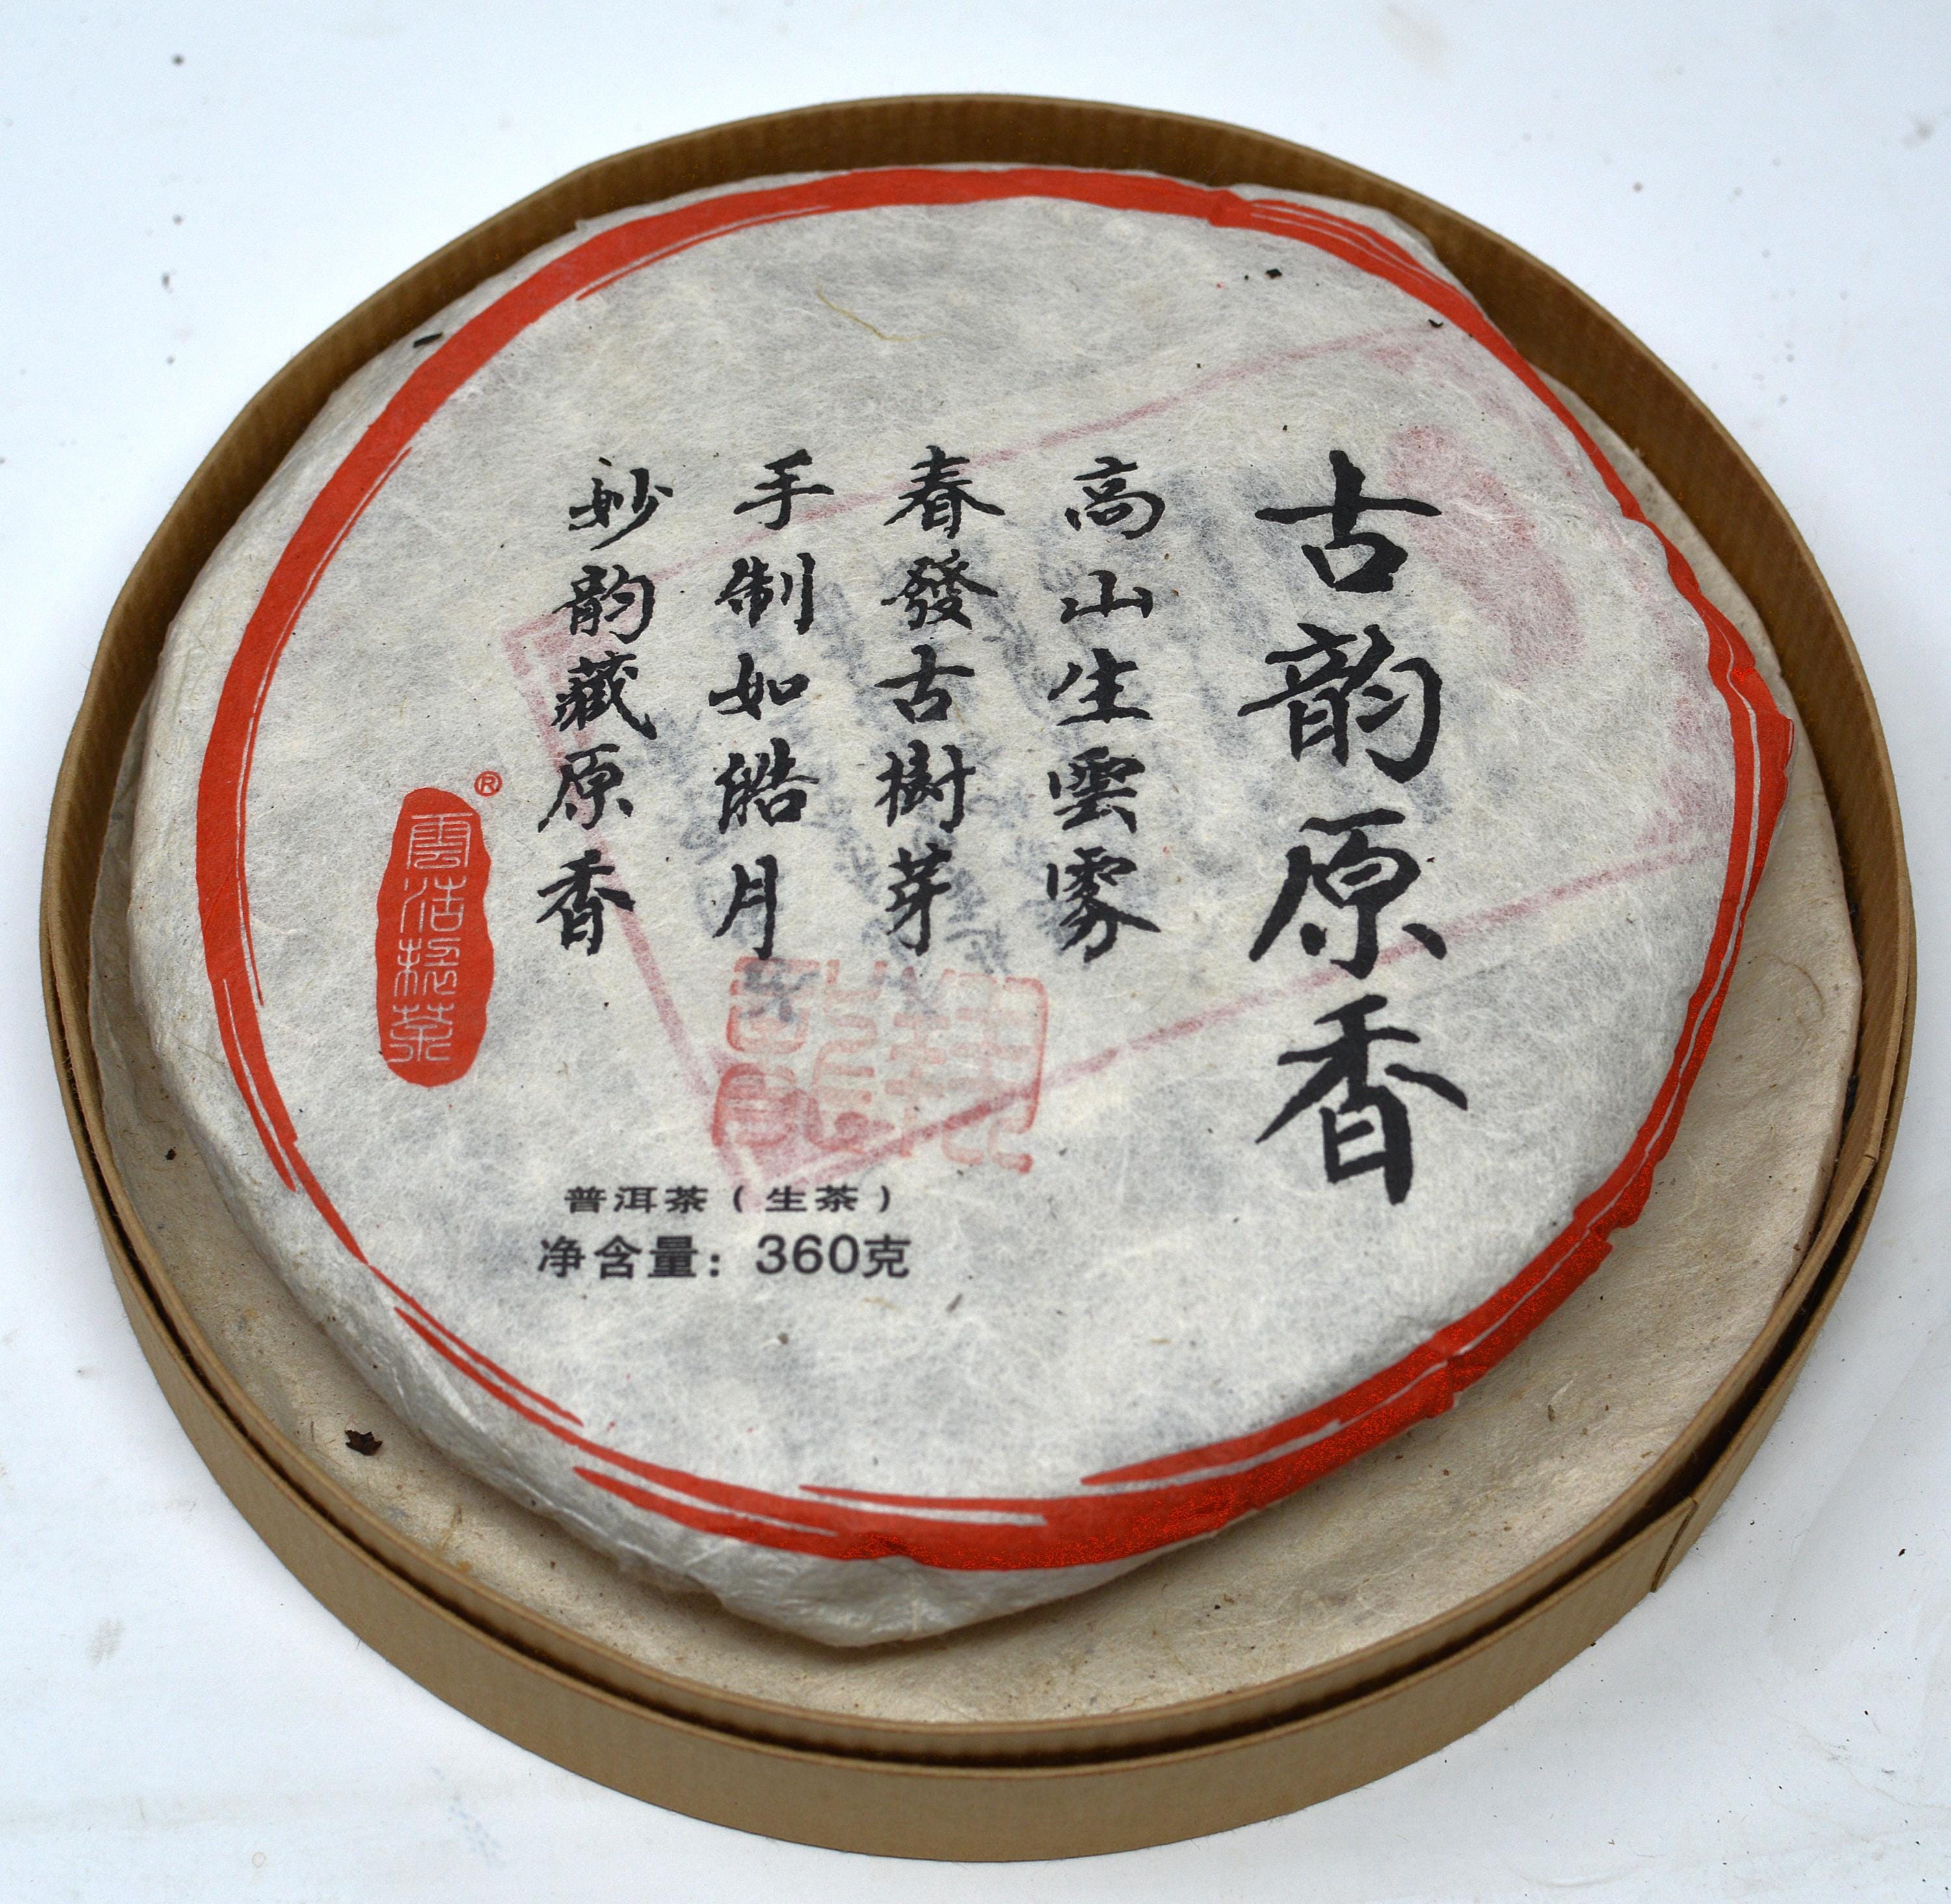 古韵原香
高山生雲雾
春發古樹芽
手制如皓月
妙韵藏原香
®
普洱茶（生茶）
净含量：360克